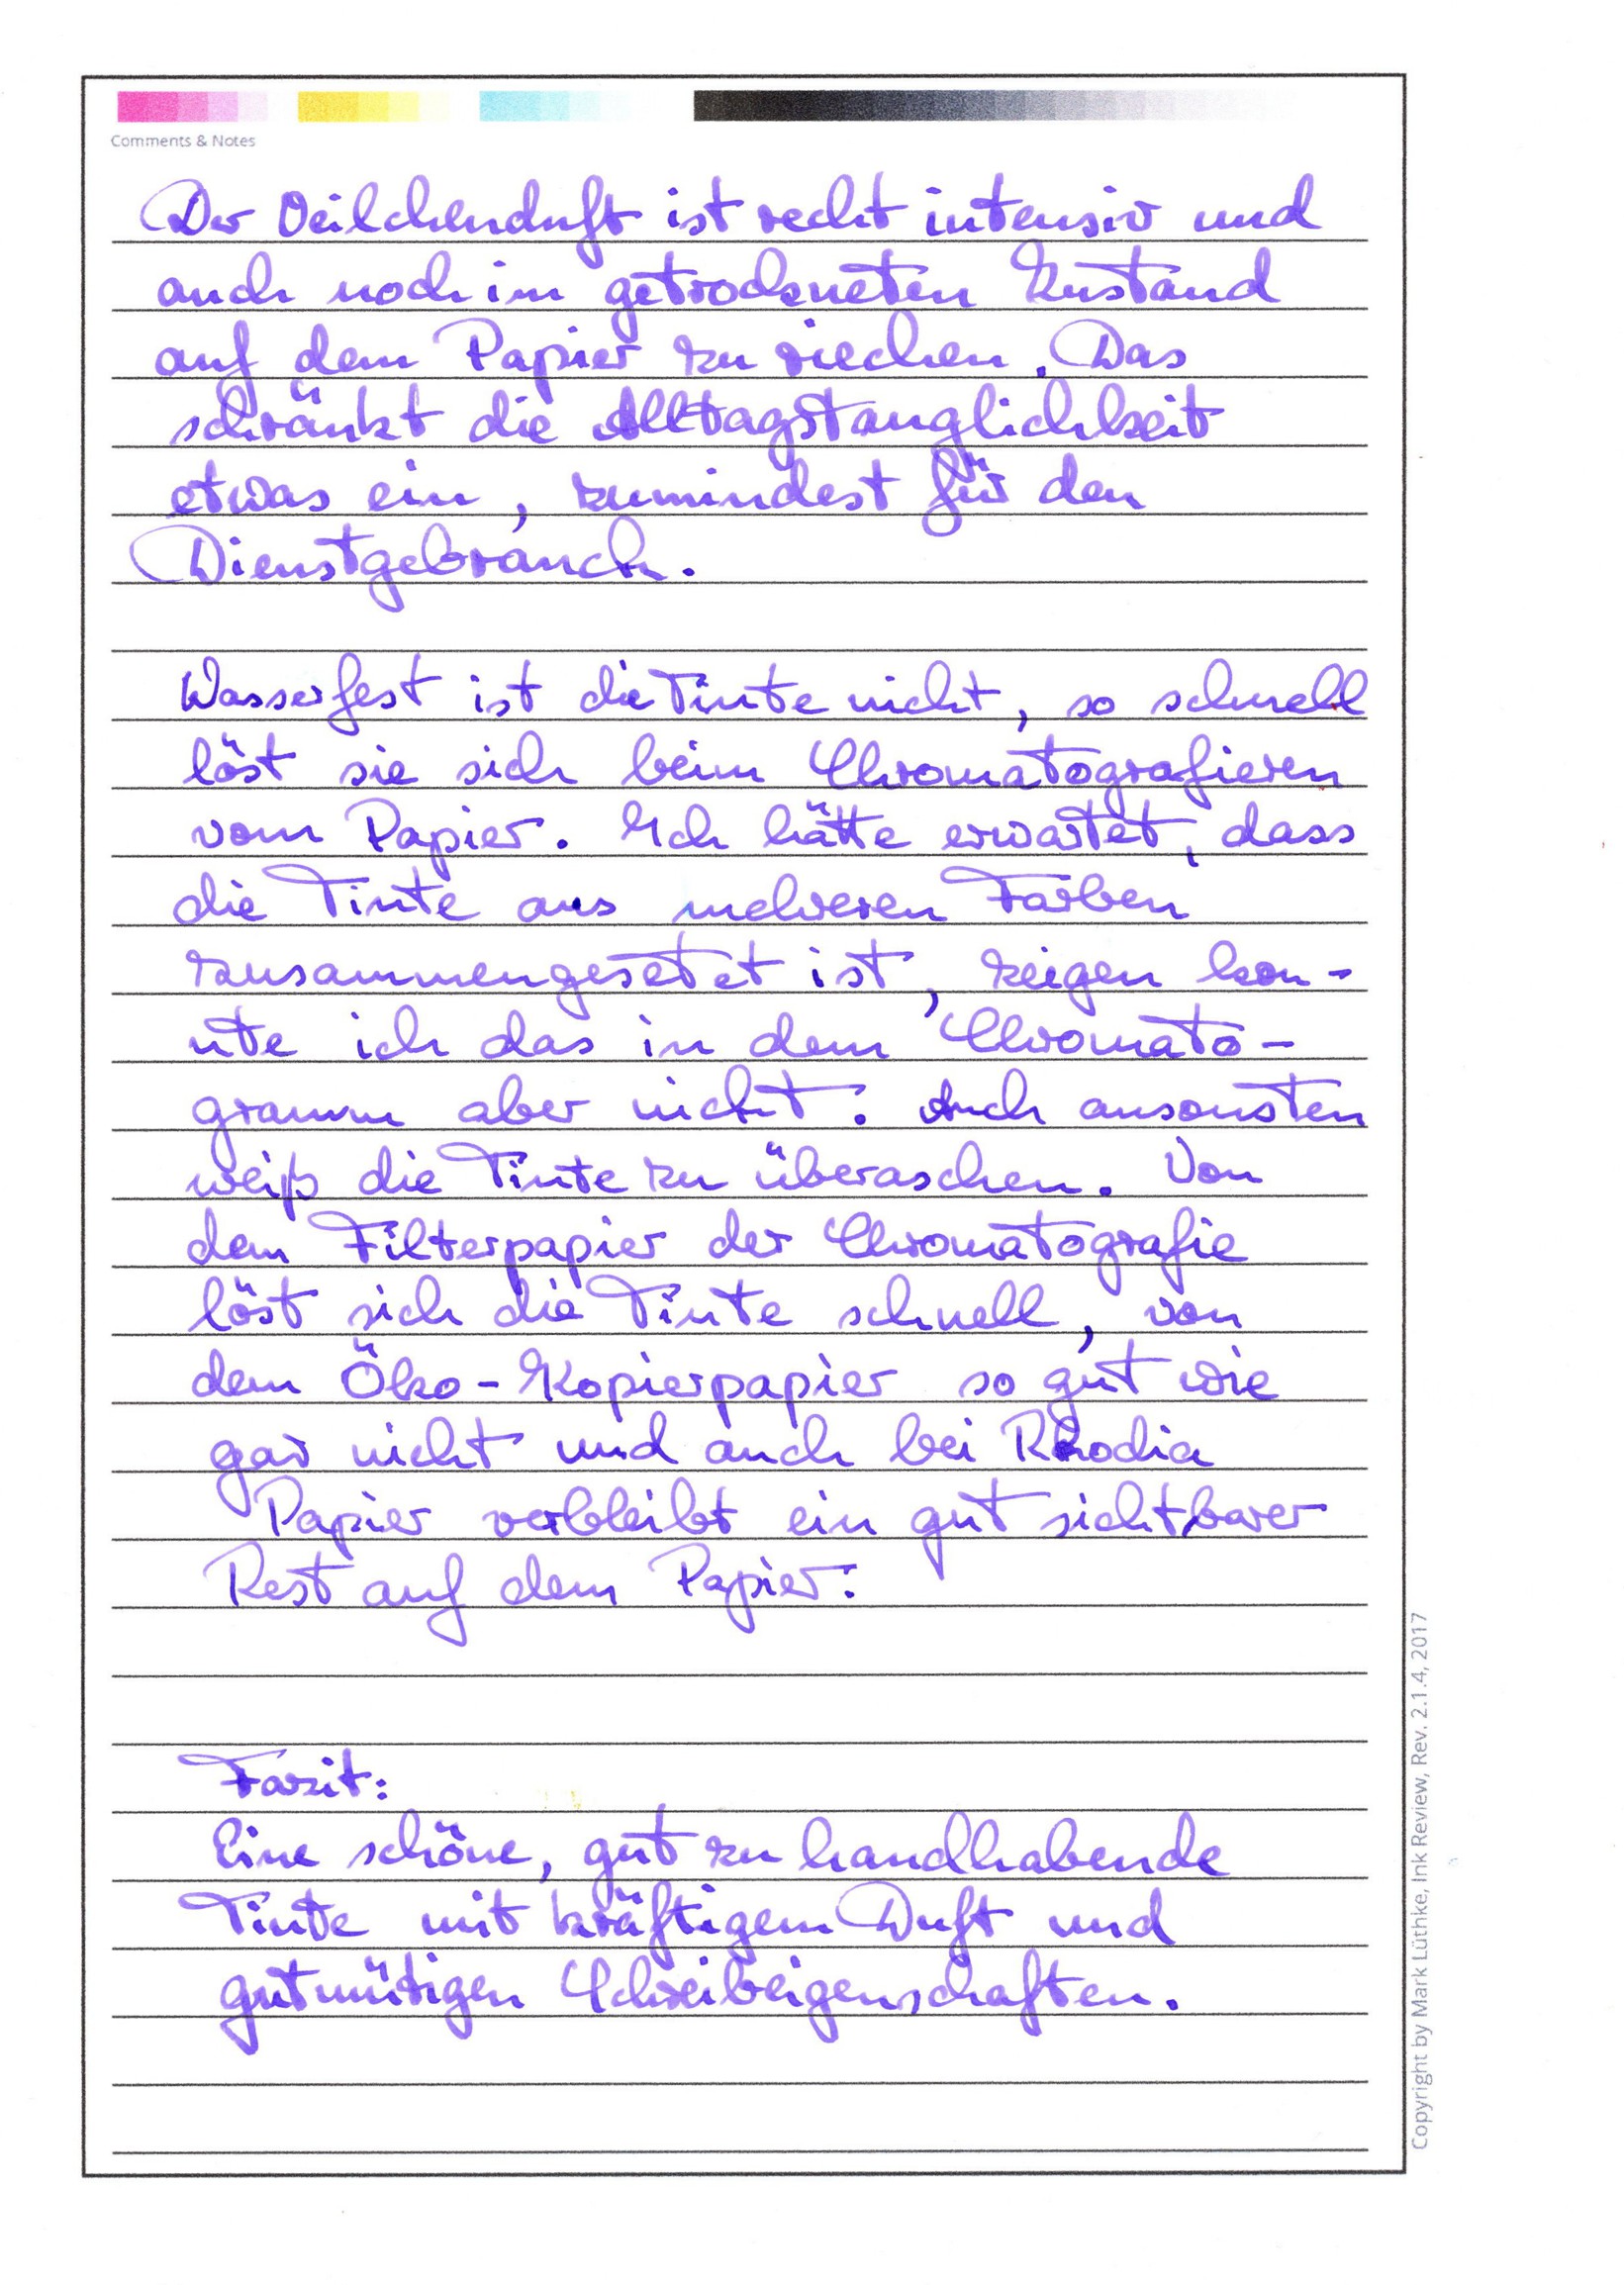 Comments & Notes
Der Veilchenduft ist recht intensiv und
auch noch im getrockneten Zustand
auf dem Papier zu riechen. Das
schränkt die Alltagstauglichkeit
etwas ein, zumindest für den
Dienstgebrauch.
Wasserfest ist die Tinte nicht, so schnell
löst sie sich beim Chromatografieren
vom Papier. Ich hätte erwartet, dass
die Tinte aus mehreren Farben
zusammengesetzt ist, zeigen kon-
nte ich das in dem Chromato-
gramm aber nicht. Auch ansonsten
weiß die Tinte zu überaschen. Von
dem Filterpapier der Chromatografie
löst sich die Tinte schnell, von
dem Öko-Kopierpapier so gut wie
gar nicht und auch bei Rhodia
Papier verbleibt ein gut sichtbarer
Rest auf dem Papier.
Fazit:
Eine schöne, gut zu handhabende
Tinte mit kräftigem Duft und
gutmütigen Schreibeigenschaften.
Copyright by Mark Lüthke, Ink Review, Rev. 2.1.4, 2017